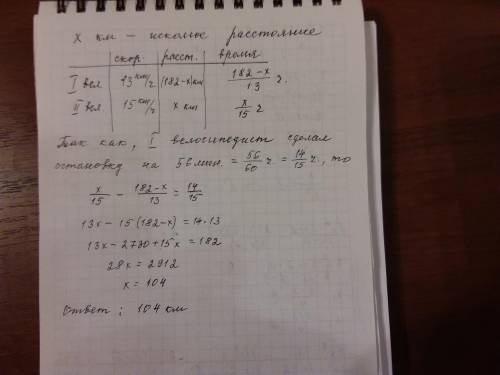 x км – искомое расстояние
скор. расст. время
I вел. 13 км/ч (182-x) км (182-x)/13 ч.
II вел. 15 км/ч x км x/15 ч
Так как, I велосипедист сделал
остановку на 56 мин. = 56/60 ч = 14/15 ч, то
x/15 - (182-x)/13 = 14/15
13x - 15(182-x) = 14·13
13x - 2730 + 15x = 182
28x = 2912
x = 104
Ответ: 104 км